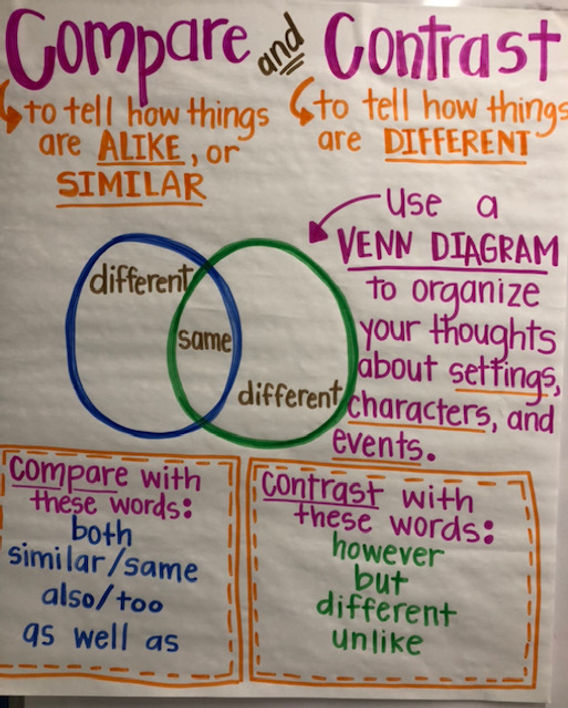 Compare and Contrast
to tell how things
are ALIKE, or
SIMILAR
to tell how things
are DIFFERENT
Use a
VENN DIAGRAM
to organize
your thoughts
about settings,
characters, and
events.
different
same
different
Compare with
these words:
both
similar/same
also/too
as well as
Contrast with
these words:
however
but
different
unlike